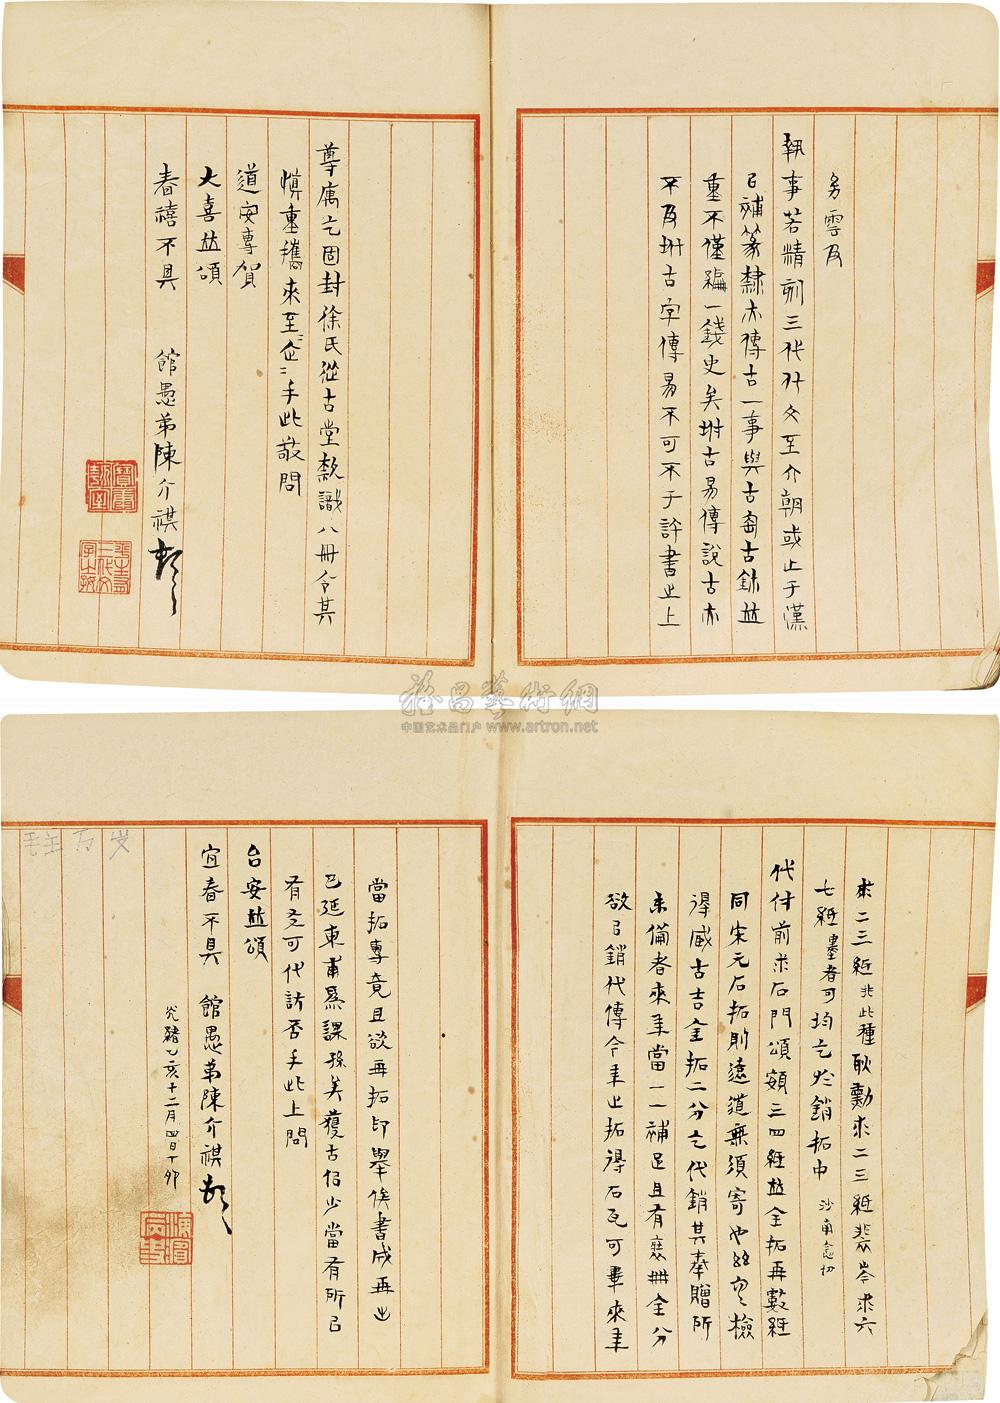 另雲及
執事若精刻三代竹文至介朝或止于漢
㠯補篆隸亦傳古一事與古匋古鉥並
重不僅編一錢史矣坿古易傳說古亦
不及坿古字傳易不可不于許書止上
尊寓乞固封徐氏從古堂款識八冊令其
慎重攜來至企=手此敬問
道安專賀
大喜並頌
春禧不具 館愚弟陳介祺頓
雅昌藝術網
中国艺术品门户 www.artron.net
求二三紙北此種耿勳求二三紙裴岑求六
七紙墨者可均乞於銷拓中
代付前求石門頌額三四紙並全拓再數紙
同宋元石拓則遠道無須寄也 檢
得咸古吉金拓二分乞代銷其奉贈所
未備者來年當一一補足且有裹冊全分
欲㠯銷代傳今年止拓得石瓦可畢來年
當拓專竟且欲再拓印舉俟書成再出
已延東甫為課孫矣獲古但少當有所㠯
有乞可代訪否手此上問
台安並頌
宜春不具 館愚弟陳介祺頓
光緒乙亥十二月四日丁卯